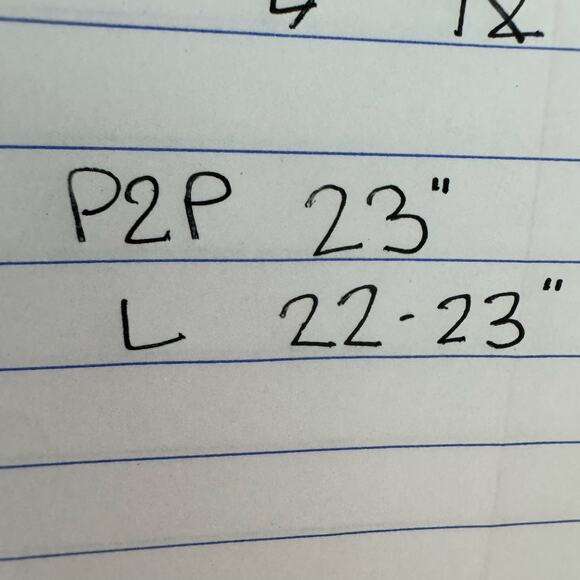 P2P 23"
L 22-23"